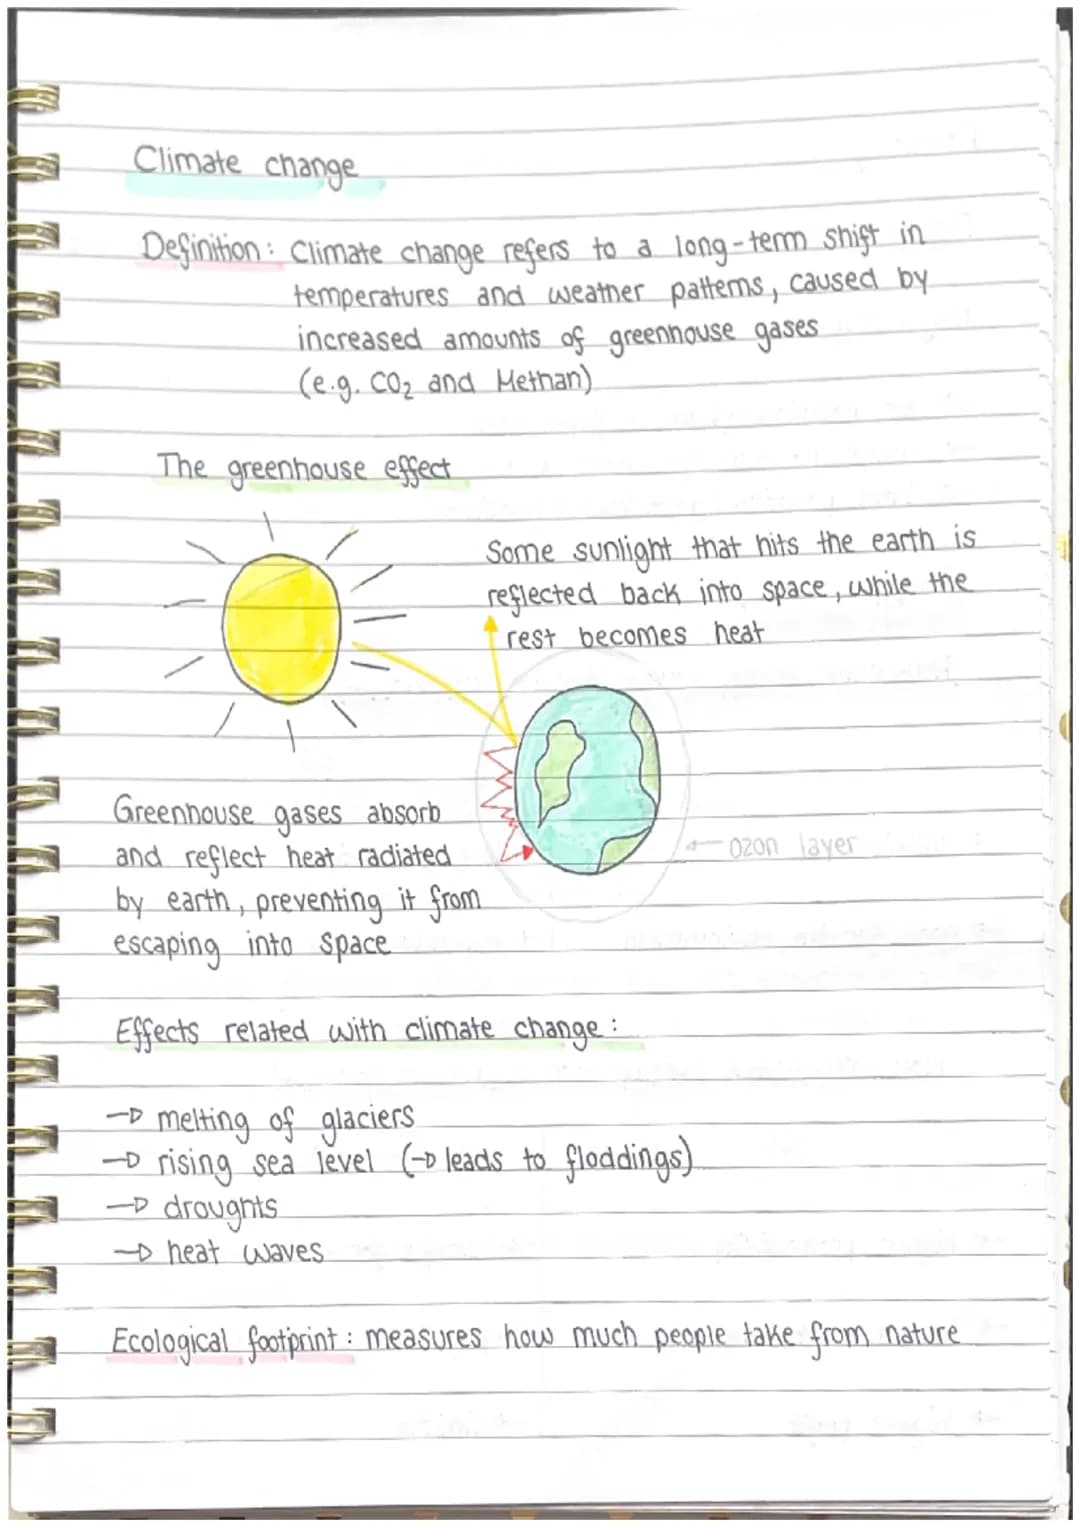 Climate change
Definition: Climate change refers to a long-term shift in
temperatures and weather patterns, caused by
increased amounts of greenhouse gases
(e.g. CO₂ and Methan)
The greenhouse effect
Some sunlight that hits the earth is
reflected back into space, while the
rest becomes heat
Greenhouse gases absorb
and reflect heat radiated
by earth, preventing it from
escaping into space
← ozon layer
Effects related with climate change:
→ melting of glaciers
→ rising sea level (→ leads to floddings)
→ droughts
→ heat waves
Ecological footprint: measures how much people take from nature